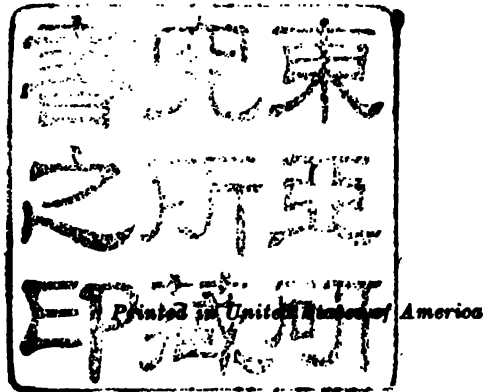 東亞研
究所藏
書之印
Printed in United States of America